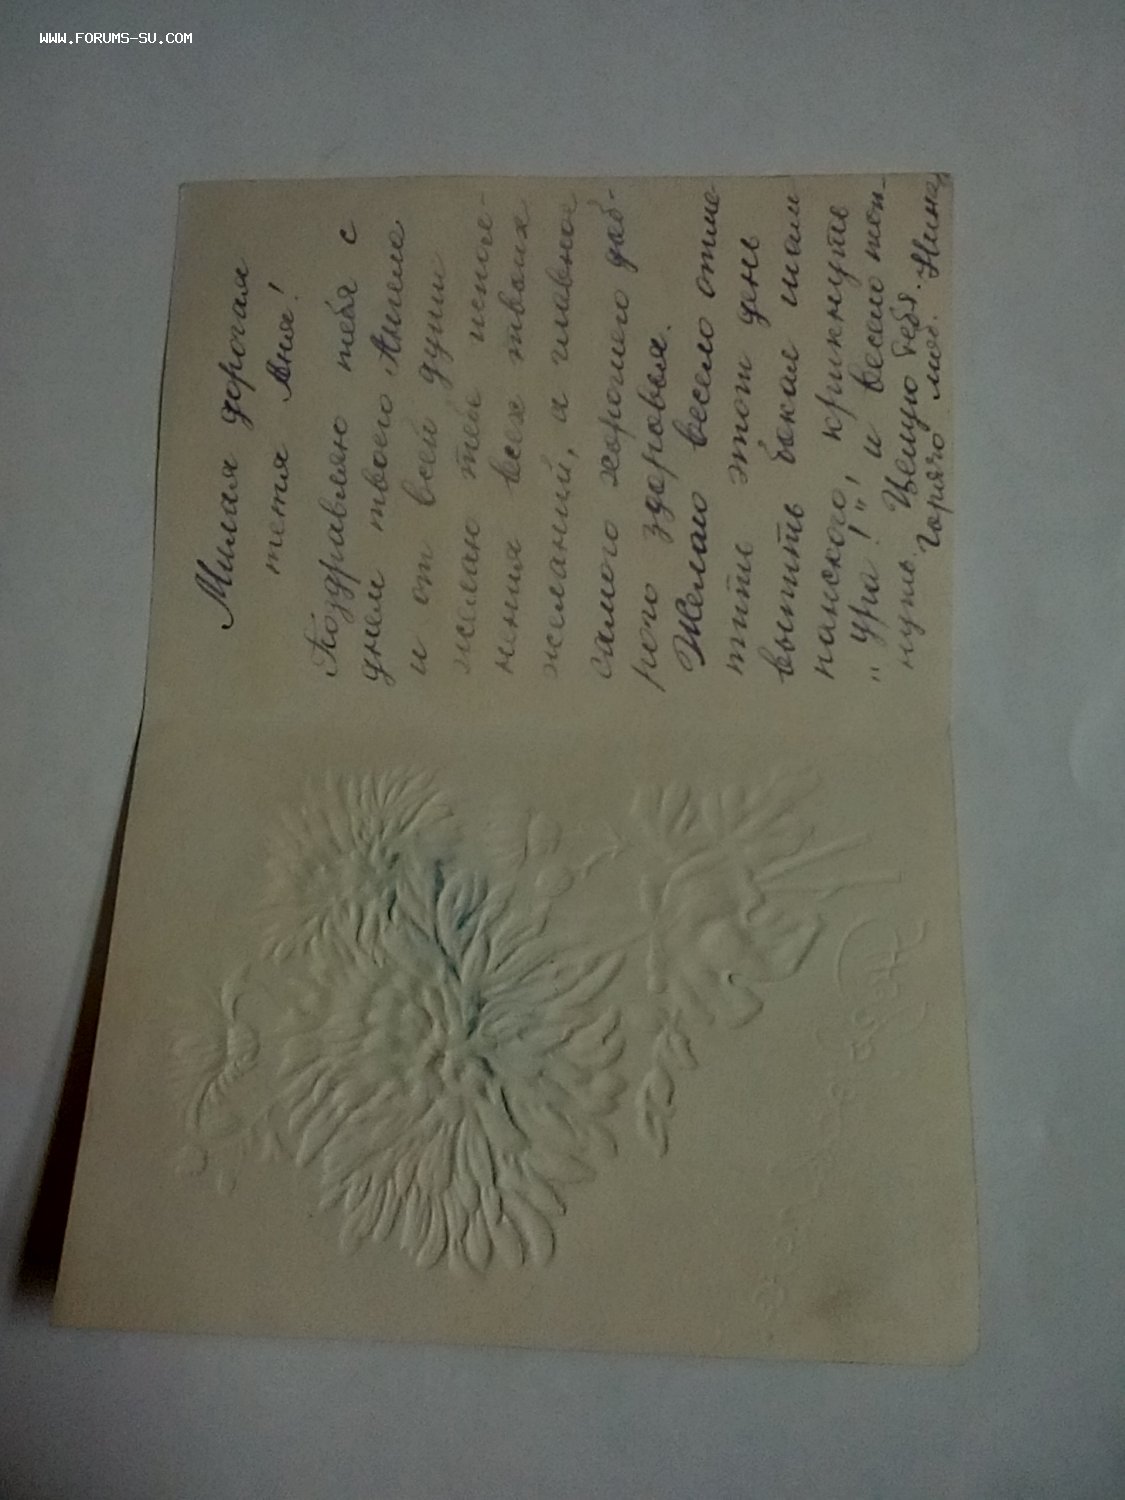 WWW.FORUMS-SU.COM
Милая дорогая
тетя Аня!
Поздравляю тебя с
днем твоего Ангела
и от всей души
желаю тебе испол-
нения всех твоих
желаний, а главное
самого хорошего доб-
рого здоровья.
Желаю весело отме
тить этот день
выпить бокал шам
панского, крикнуть
"ура!", и весело
Целую тебя.
Горячо люб. Нина